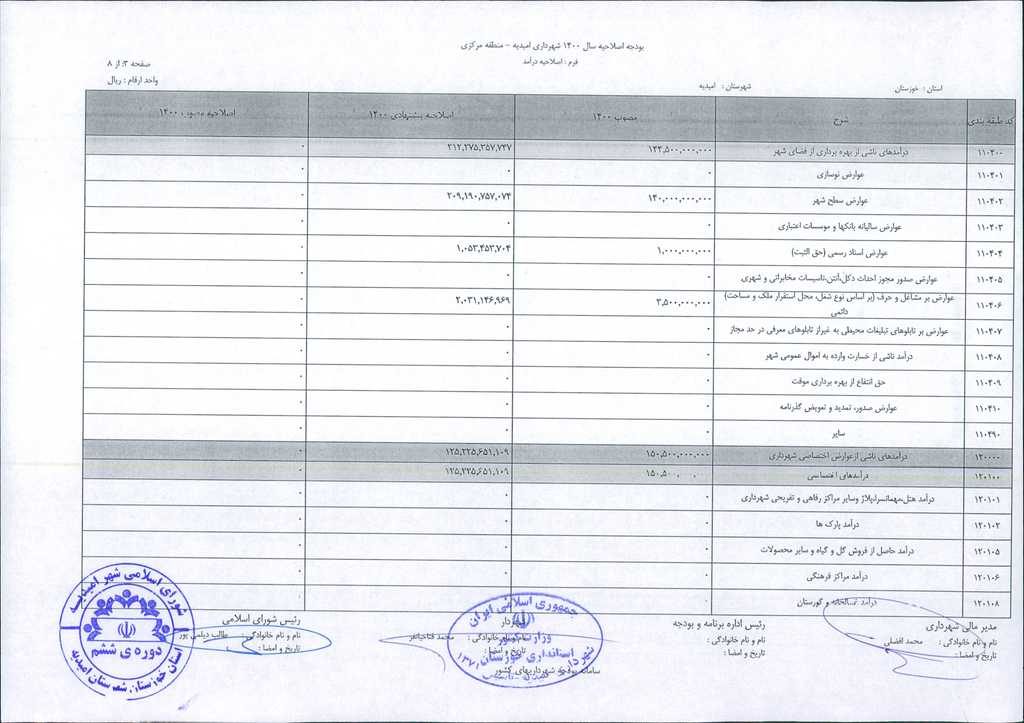 بودجه اصلاحیه سال ۱۴۰۰ شهرداری امیدیه - منطقه مرکزی
فرم : اصلاحیه درآمد
صفحه ۳ از ۸
واحد ارقام : ریال
استان : خوزستان شهرستان : امیدیه
کد طبقه بندی شرح مصوب ۱۴۰۰ اصلاحیه پیشنهادی ۱۴۰۰ اصلاحیه مصوب ۱۴۰۰
۱۱۰۴۰۰ درآمدهای ناشی از بهره برداری از فضای شهر ۱۴۴,۵۰۰,۰۰۰,۰۰۰ ۲۱۲,۲۷۵,۳۵۷,۷۴۷ ۰
۱۱۰۴۰۱ عوارض نوسازی ۰ ۰ ۰
۱۱۰۴۰۲ عوارض سطح شهر ۱۴۰,۰۰۰,۰۰۰,۰۰۰ ۲۰۹,۱۹۰,۷۵۷,۰۷۴ ۰
۱۱۰۴۰۳ عوارض سالیانه بانکها و موسسات اعتباری ۰ ۰ ۰
۱۱۰۴۰۴ عوارض اسناد رسمی (حق الثبت) ۱,۰۰۰,۰۰۰,۰۰۰ ۱,۰۵۳,۴۵۳,۷۰۴ ۰
۱۱۰۴۰۵ عوارض صدور مجوز احداث دکل،آنتن،تاسیسات مخابراتی و شهری ۰ ۰ ۰
۱۱۰۴۰۶ عوارض بر مشاغل و حرف (بر اساس نوع شغل، محل استقرار ملک و مساحت) ۳,۵۰۰,۰۰۰,۰۰۰ ۲,۰۳۱,۱۴۶,۹۶۹ ۰
دائمی
۱۱۰۴۰۷ عوارض بر تابلوهای تبلیغات محیطی به غیراز تابلوهای معرفی در حد مجاز ۰ ۰ ۰
۱۱۰۴۰۸ درآمد ناشی از خسارت وارده به اموال عمومی شهر ۰ ۰ ۰
۱۱۰۴۰۹ حق انتفاع از بهره برداری موقت ۰ ۰ ۰
۱۱۰۴۱۰ عوارض صدور، تمدید و تعویض گذرنامه ۰ ۰ ۰
۱۱۰۴۹۰ سایر ۰ ۰ ۰
۱۲۰۰۰۰ درآمدهای ناشی ازعوارض اختصاصی شهرداری ۱۵۰,۵۰۰,۰۰۰,۰۰۰ ۱۲۵,۲۲۵,۶۵۱,۱۰۹ ۰
۱۲۰۱۰۰ درآمدهای اختصاصی ۱۲۵,۲۲۵,۶۵۱,۱۰۹ ۰
۱۲۰۱۰۱ درآمد هتل،مهمانسرا،پلاژ وسایر مراکز رفاهی و تفریحی شهرداری ۰ ۰ ۰
۱۲۰۱۰۲ درآمد پارک ها ۰ ۰ ۰
۱۲۰۱۰۵ درآمد حاصل از فروش گل و گیاه و سایر محصولات ۰ ۰ ۰
۱۲۰۱۰۶ درآمد مراکز فرهنگی ۰ ۰ ۰
۱۲۰۱۰۸ درآمد غسالخانه و گورستان ۰ ۰ ۰
مدیر مالی شهرداری
نام و نام خانوادگی : محمد افضلی
تاریخ و امضا :
رئیس اداره برنامه و بودجه
نام و نام خانوادگی :
تاریخ و امضا :
نام و نام خانوادگی : محمد فتاحیانفر
تاریخ و امضا :
رئیس شورای اسلامی
نام و نام خانوادگی : طالب دیلمی پور
تاریخ و امضا :
سامانه بودجه شهرداریهای کشور
جمهوری اسلامی ایران
وزارت کشور
استانداری خوزستان
شورای اسلامی شهر امیدیه
دوره ی ششم
استان خوزستان شهرستان امیدیه